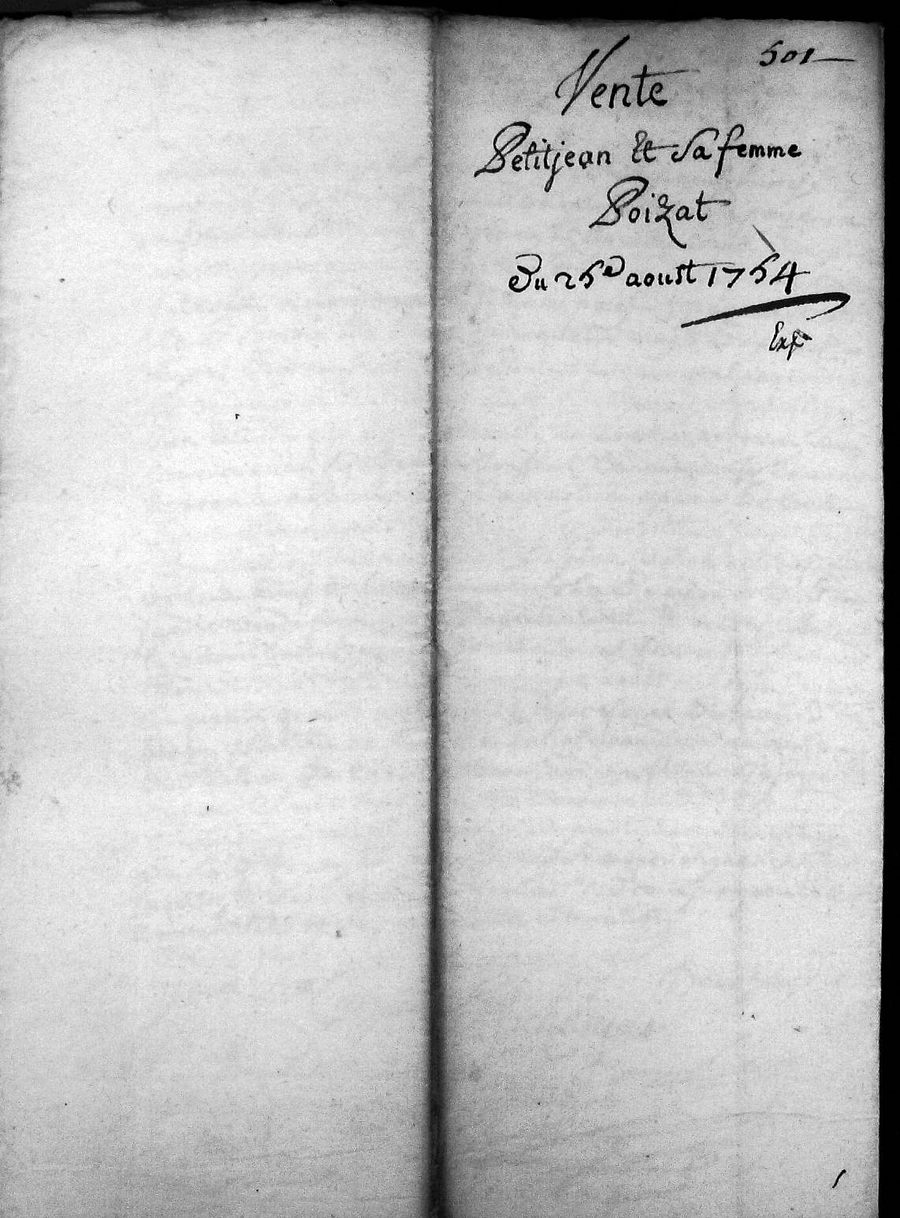 501
Vente
Petitjean Et Sa femme
Poizat
Du 25e aoust 1754
Exp